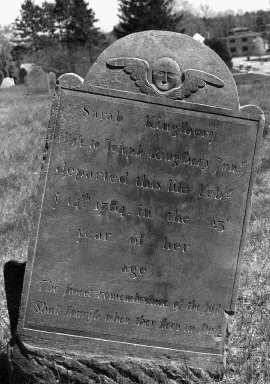 Sarah Kingsbery
Wife to Joseph Kingsbery Junr.
departed this life Febr.
ye 14th 1784, in the 23d
year of her
age
The sweet remembrance of the Just
Shall flourish when they sleep in Dust